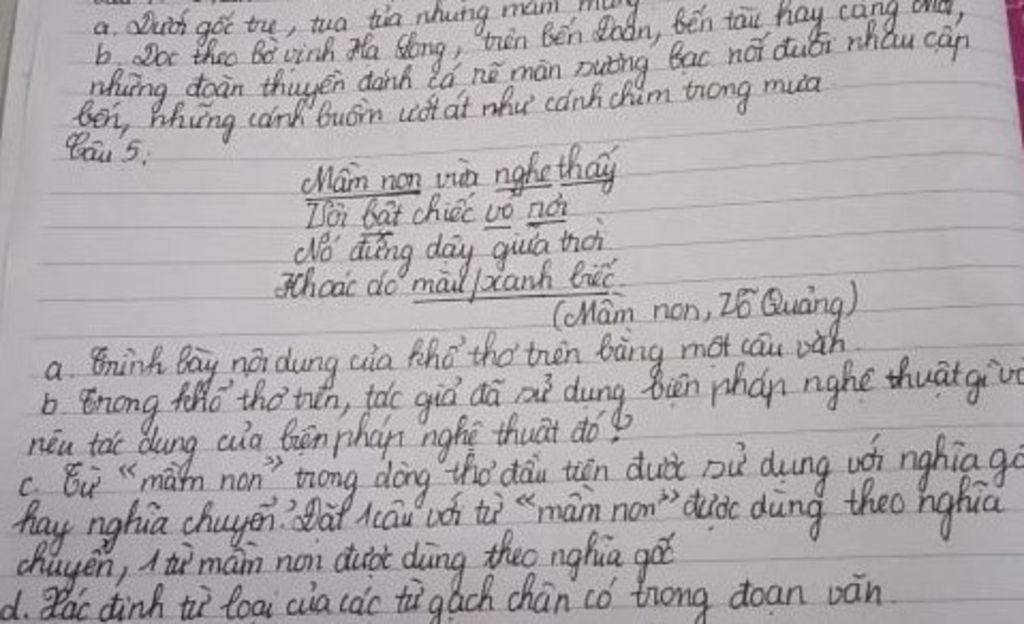 a. Dưới gốc tre, tua tủa những mầm măng
b. Dọc theo bờ vịnh Hạ Long, trên bến Đoan, bến tàu hay cảng
những đoàn thuyền đánh cá rẽ màn sương bạc nối đuôi nhau cập
bến, những cánh buồm ướt át như cánh chim trong mưa
Câu 5:
Mầm non vừa nghe thấy
Vội bật chiếc vỏ rơi
Nó đứng dậy giữa trời
Khoác áo màu/xanh biếc.
(Mầm non, Võ Quảng)
a. Trình bày nội dung của khổ thơ trên bằng một câu văn.
b. Trong khổ thơ trên, tác giả đã sử dụng biện pháp nghệ thuật gì và
nêu tác dụng của biện pháp nghệ thuật đó?
c. Từ "mầm non" trong dòng thơ đầu tiên được sử dụng với nghĩa gố
hay nghĩa chuyển? Đặt 1 câu với từ "mầm non" được dùng theo nghĩa
chuyển, 1 từ mầm non được dùng theo nghĩa gốc
d. Xác định từ loại của các từ gạch chân có trong đoạn văn.